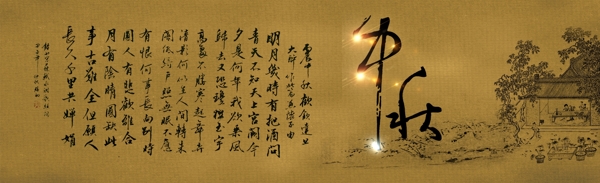 中秋
丙申中秋歡飲達旦
大醉作此篇兼懷子由
明月幾時有把酒問
青天不知天上宮闕今
夕是何年我欲乘風
歸去又恐瓊樓玉宇
高處不勝寒起舞弄
清影何似在人間轉朱
閣低綺戶照無眠不應
有恨何事長向別時
圓人有悲歡離合
月有陰晴圓缺此
事古難全但願人
長久千里共嬋娟